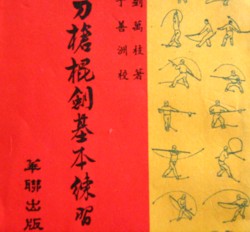 刀槍棍劍基本練習
劉萬桂著
于善洲校
華聯出版